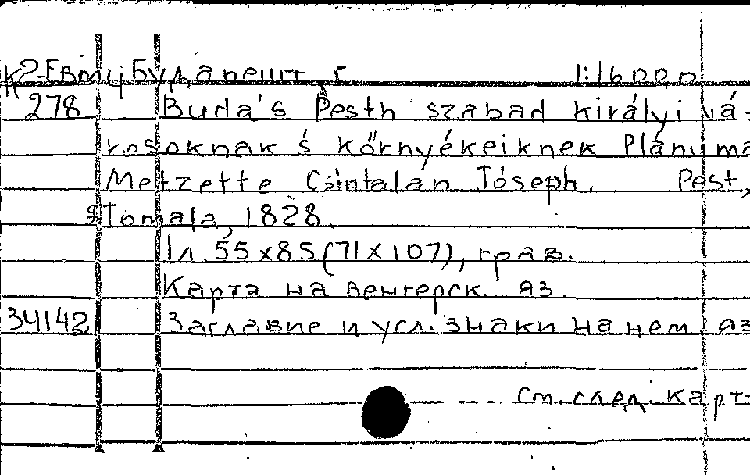 К2-Евт/j Будапешт, г. 1:16000
278 Buda's Pesth szabad királyi vá-
rosoknak 's környékeiknek Plánuma
Metzette Csintalan Jóseph. Pest,
Tomala, 1828.
1 л. 55x85(71x107), грав.
Карта на венгерск. яз.
34142 Заглавие и усл. знаки на нем. яз
См. след. карт